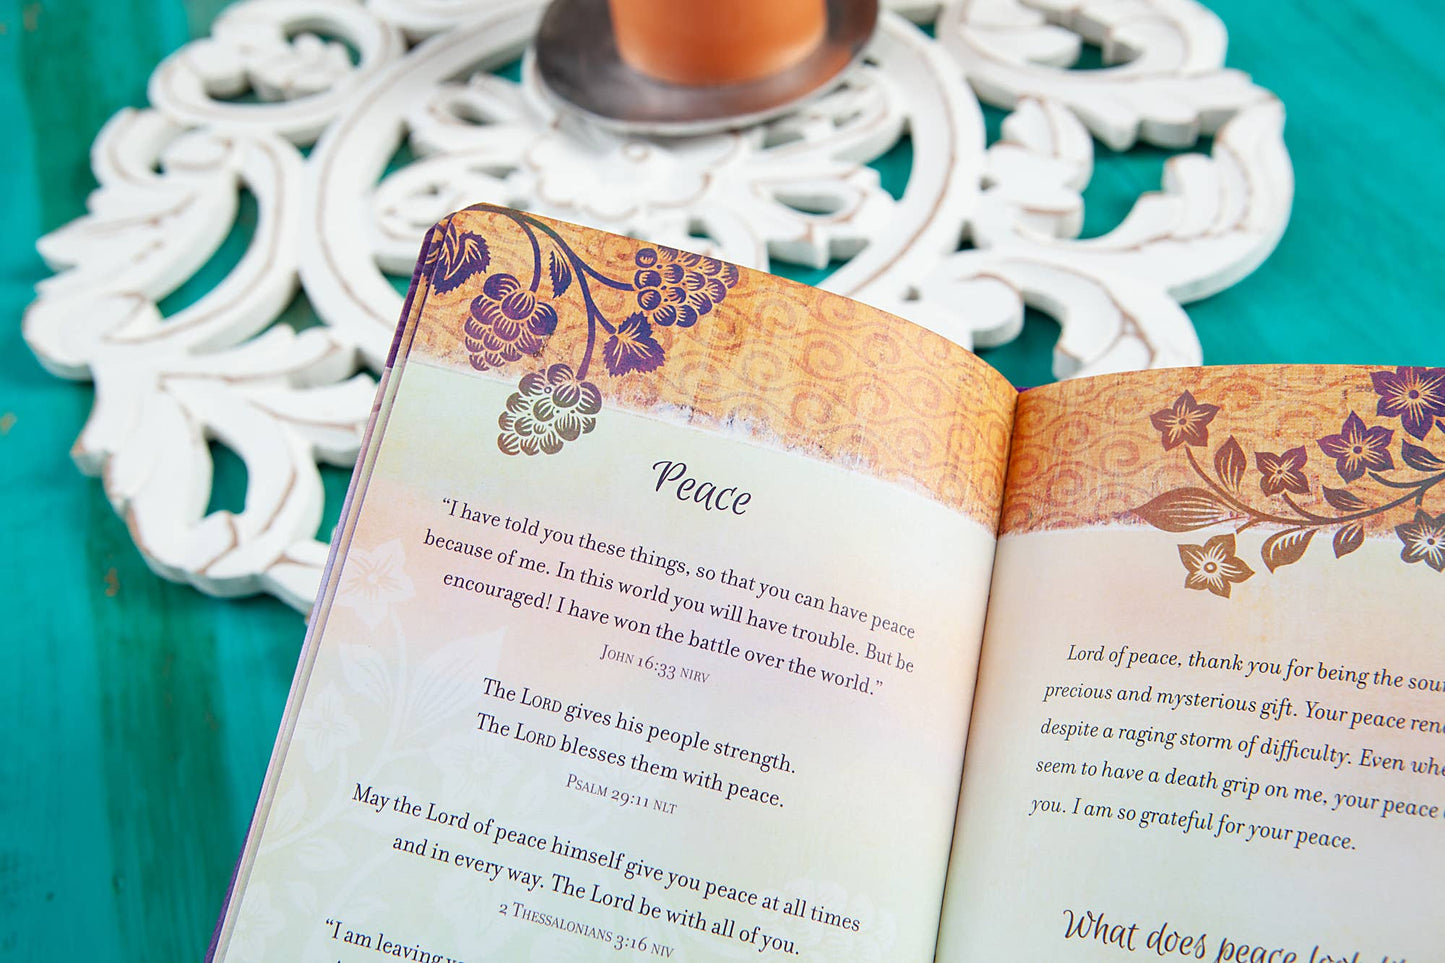 Peace
“I have told you these things, so that you can have peace
because of me. In this world you will have trouble. But be
encouraged! I have won the battle over the world.”
John 16:33 NIRV
The Lord gives his people strength.
The Lord blesses them with peace.
Psalm 29:11 NLT
May the Lord of peace himself give you peace at all times
and in every way. The Lord be with all of you.
2 Thessalonians 3:16 NIV
“I am leaving
Lord of peace, thank you for being the
precious and mysterious gift. Your peace
despite a raging storm of difficulty. Even
seem to have a death grip on me, your peace
you. I am so grateful for your peace.
What does peace look